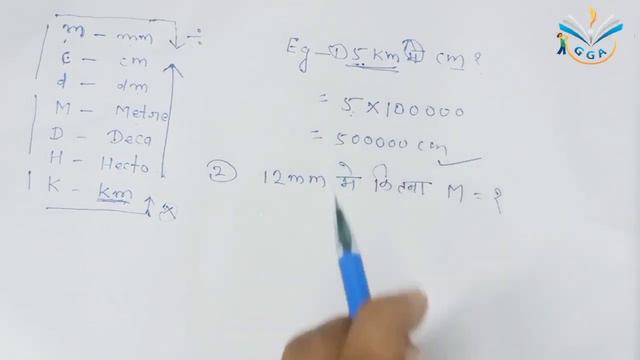 m - mm ÷
c - cm
d - dm
M - Metore
D - Deca
H - Hecto
K - Km ×
Eg - ① 5 Km में cm ?
= 5 × 100000
= 500000 cm
② 12mm मे कितना M = ?
GGA